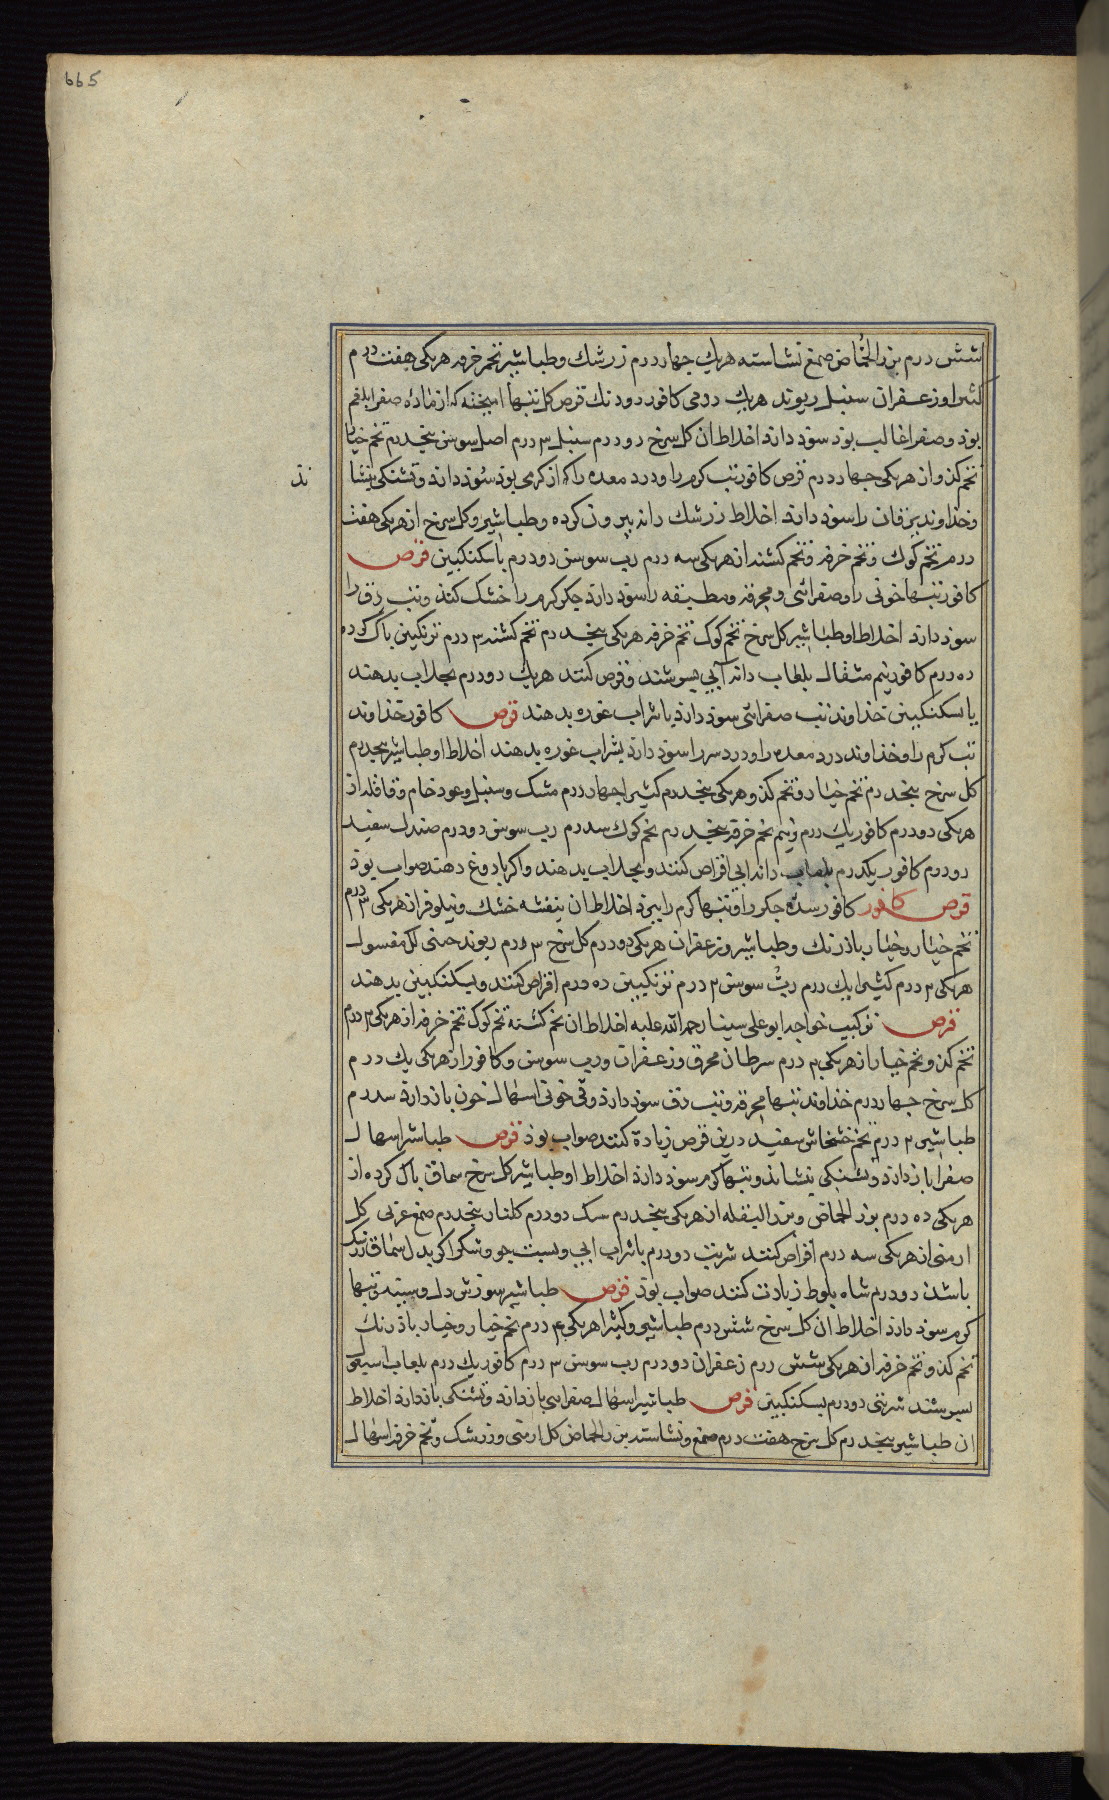 665
شش درم بزر الحُمّاض صمغ نشاسته هریك چهار درم زرشك وطباشیر تخم خرفه هریکی هفت درم
کثیرا وزعفران سنبل ریوند هریك درمی کافور دو دنك قرص کل تبهآء امیخته که از ماده صفرا بلغم
بوذ وصفرا غالب بوذ سوذ دارذ اخلاط ان کل سرخ دو درم سنبل ۳ درم اصل سوس پنجدرم تخم خیار
تخم کذو از هریکی چهار درم قرص کافور تب کرم را ودرد معده را که از کرمی بوذ سوذ دارذ وتشنکی بنشا
نذ
وخذاوند یرقان را سوذ دارذ اخلاط زرشك دانه بیرون کرده وطباشیر وکل سرخ از هریکی هفت
درم تخم کوك وتخم خرفه وتخم کشنه از هریکی سه درم رب سوس دو درم باسکنکبین قرص
کافور تبهاء خونی را وصفرائی ومحرقه ومطبقه را سوذ دارذ جکر کرم را خشک کنذ وتب دق را
سوذ دارذ اخلاط او طباشیر کل سرخ تخم کوک تخم خرفه هریکی پنجدرم تخم کشنه ۳ درم ترنکبین پاک کرده
ده درم کافور نیم مثقال بلعاب دانه آبی بسرشند وقرص کنند هریك دو درم بجلاب بدهند
یا سکنکبین خذاوند تب صفرائی سوذ دارذ با شراب غوره بدهند قرص کافور خذاوند
تب کرم را وخذاوند درد معده را ودرد سر را سوذ دارذ بشراب غوره بدهند اخلاط او طباشیر پنجدرم
کل سرخ پنجدرم تخم خیار وتخم کذو هریکی پنجدرم کثیرا چهار درم مشک وسنبل وعود خام وقاقله از
هریکی دو درم کافور یك درم ونیم تخم خرفه پنجدرم تخم کوك سه درم رب سوس دو درم صندل سفید
دو درم کافور یکدرم بلعاب دانه ابی اقراص کنند وبجلاب بدهند واکر با دوغ دهند صواب بوذ
قرص کافور کافور سده جکر را وتبهاء کرم را ببرذ اخلاط ان بنفشه خشك ونیلوفر از هریکی ۳ درم
تخم خیار وخیار باذرنك وطباشیر وزعفران هریکی دو درم کل سرخ ۳ درم ریوند چینی لك مغسول
هریکی ۲ درم کثیرا یك درم ربّ سوس ۲ درم ترنکبین ده درم اقراص کنند وبسکنکبین بدهند
قرص ترکیب خواجه ابو علی سینا رحمة الله علیه اخلاط ان تخم کشنه تخم کوک تخم خرفه از هریکی ۳ درم
تخم کذو تخم خیار از هریکی ۲ درم سرطان محرق وزعفران ورب سوس وکافور از هریکی یك درم
کل سرخ چهار درم خذاوند تبهاء محرقه وتب دق سوذ دارذ وقی خونی اسهال خون بازدارذ سه درم
طباشیر ۲ درم تخم خشخاش سفید درین قرص زیادة کنند صواب بوذ قرص طباشیر اسهال
صفرا بازدارذ وتشنکی بنشاند وتبهاء کرم سوذ دارذ اخلاط او طباشیر کل سرخ سماق پاک کرده از
هریکی ده درم بزر الحماض وبزر البقله از هریکی پنجدرم سک دو درم کلنار پنجدرم صمغ عربی کل
ارمنی از هریکی سه درم اقراص کنند شربت دو درم با شراب ابی وبست جو وشکر اکر بدل سماق زرشک
باشذ دو درم شاه بلوط زیادت کنند صواب بوذ قرص طباشیر سوزش دل وسینه وتبهاء
کرم سوذ دارذ اخلاط ان کل سرخ شش درم طباشیر وکثیرا هریکی ۴ درم تخم خیار وخیار باذرنك
تخم کذو وتخم خرفه از هریکی شش درم زعفران دو درم رب سوس ۳ درم کافور یك درم بلعاب اسبغول
بسرشند شربتی دو درم بسکنکبین قرص طباشیر اسهال صفرائی بازدارذ وتشنکی بازدارذ اخلاط
ان طباشیر پنجدرم کل سرخ هفت درم صمغ ونشاسته بزر الحماض کل ارمنی وزرشک وتخم خرفه اسهال